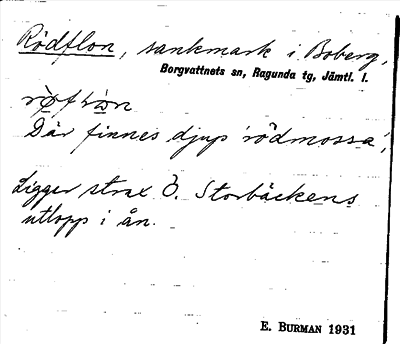 Rödflon, sankmark i Boberg,
Borgvattnets sn, Ragunda tg, Jämtl. l.
Där finnes djup 'rödmossa',
Ligger strax Ö. Storbäckens
utlopp i ån.
E. BURMAN 1931